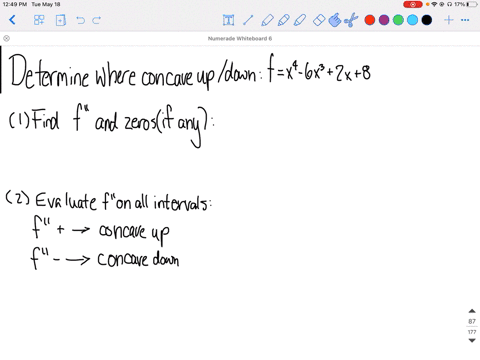 12:49 PM Tue May 18
17%
Numerade Whiteboard 6
Determine where concave up/down: f=x⁴-6x³+2x+8
(1) Find f" and zeros(if any):
(2) Evaluate f" on all intervals:
f" + → concave up
f" - → concave down
87
177